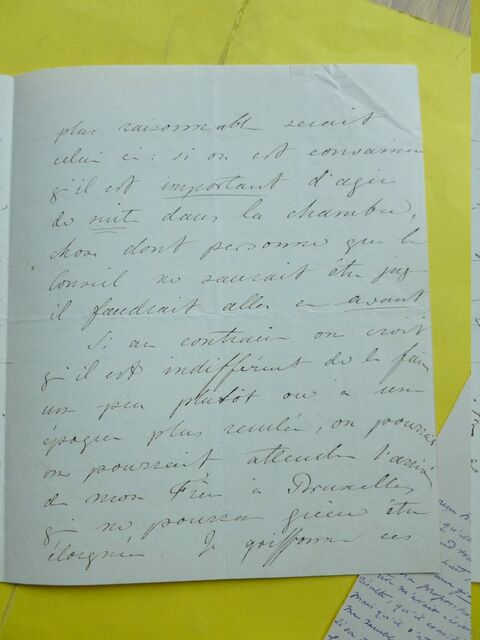 plus raisonnable serait
celui ci: si on est convaincu
qu'il est important d'agir
de suite dans la chambre,
chose dont personne que le
Conseil ne saurait être juge
il faudrait aller en avant
Si au contraire on croit
qu'il est indifférent de le faire
un peu plutôt ou à une
époque plus reculée, on pourrait
on pourrait attendre l'arrivée
de mon Frère à Bruxelles
qui ne pourra guère être
éloignée. Je griffonne ces